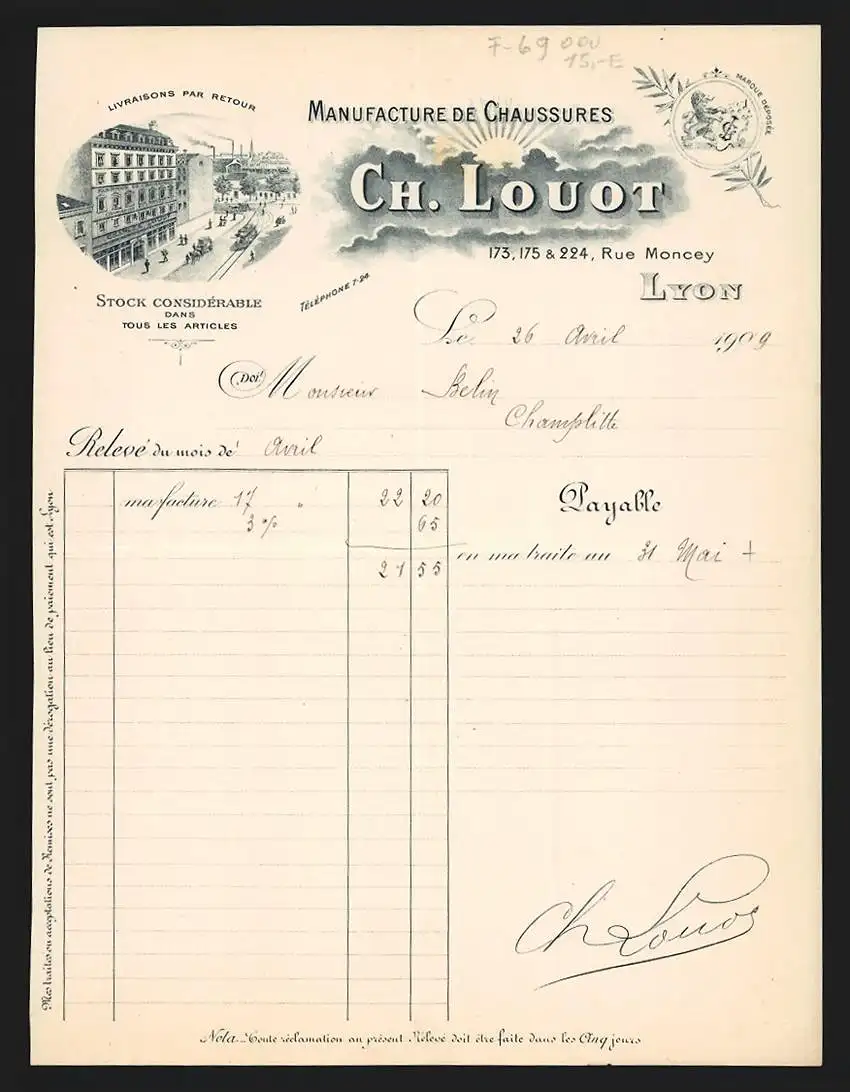 F-69 000
15,-E
LIVRAISONS PAR RETOUR
MANUFACTURE DE CHAUSSURES
MARQUE DÉPOSÉE
CH. LOUOT
173, 175 & 224, RUE MONCEY
LYON
STOCK CONSIDÉRABLE
DANS
TOUS LES ARTICLES
TÉLÉPHONE 7-24
Le 26 Avril 1909
Doit Monsieur Belin
Champlitte
Relevé du mois de Avril
ma facture 17 " 22 20
3 % 65
21 55
Payable
en ma traite au 31 Mai +
Mes traites ou acceptations de Remises ne sont pas une dérogation au lieu de paiement qui est Lyon
Ch Louot
Nota. Toute réclamation au présent Relevé doit être faite dans les Cinq jours